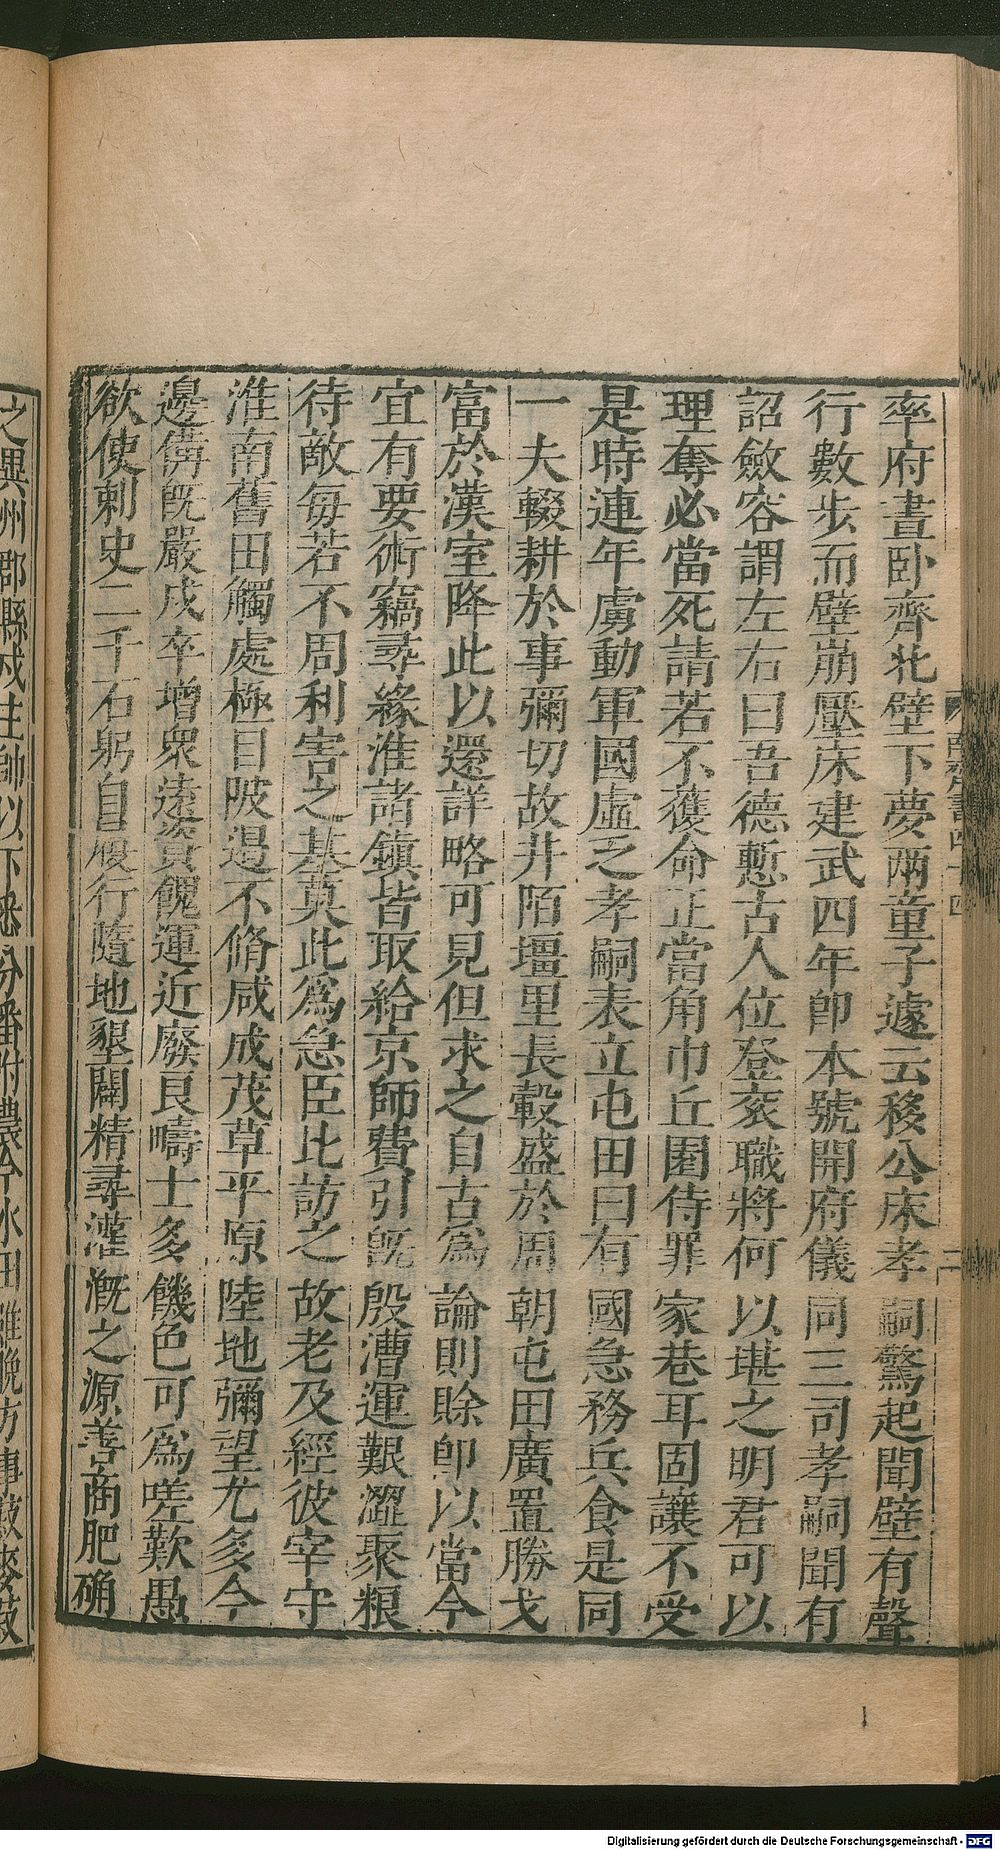 率府晝卧齊北壁下夢兩童子遽云移公床孝嗣驚起聞壁有聲
行數步而壁崩壓床建武四年即本號開府儀同三司孝嗣聞有
詔斂容謂左右曰吾德慙古人位登衮職將何以堪之明君可以
理奪必當死請若不獲命正當角巾丘園待罪家巷耳固讓不受
是時連年虜動軍國虛乏孝嗣表立屯田曰有國急務兵食是同
一夫輟耕於事彌切故井陌壃里長轂盛於周朝屯田廣置勝戈
富於漢室降此以還詳略可見但求之自古爲論則賒即以當今
宜有要術竊尋緣淮諸鎮皆取給京師費引既殷漕運艱澀聚粮
待敵每若不周利害之基莫此爲急臣比訪之故老及經彼宰守
淮南舊田觸處極目陂遏不脩咸成茂草平原陸地彌望尤多今
邊備既嚴戍卒增眾遠資餽運近廢良疇士多饑色可爲嗟歎愚
欲使刺史二千石躬自履行隨地墾闢精尋灌溉之源善商肥确
之異州郡縣戍主帥以下悉分番附農今水田雖晚方事菽麥菽
南齊書四十四
二
Digitalisierung gefördert durch die Deutsche Forschungsgemeinschaft - DFG